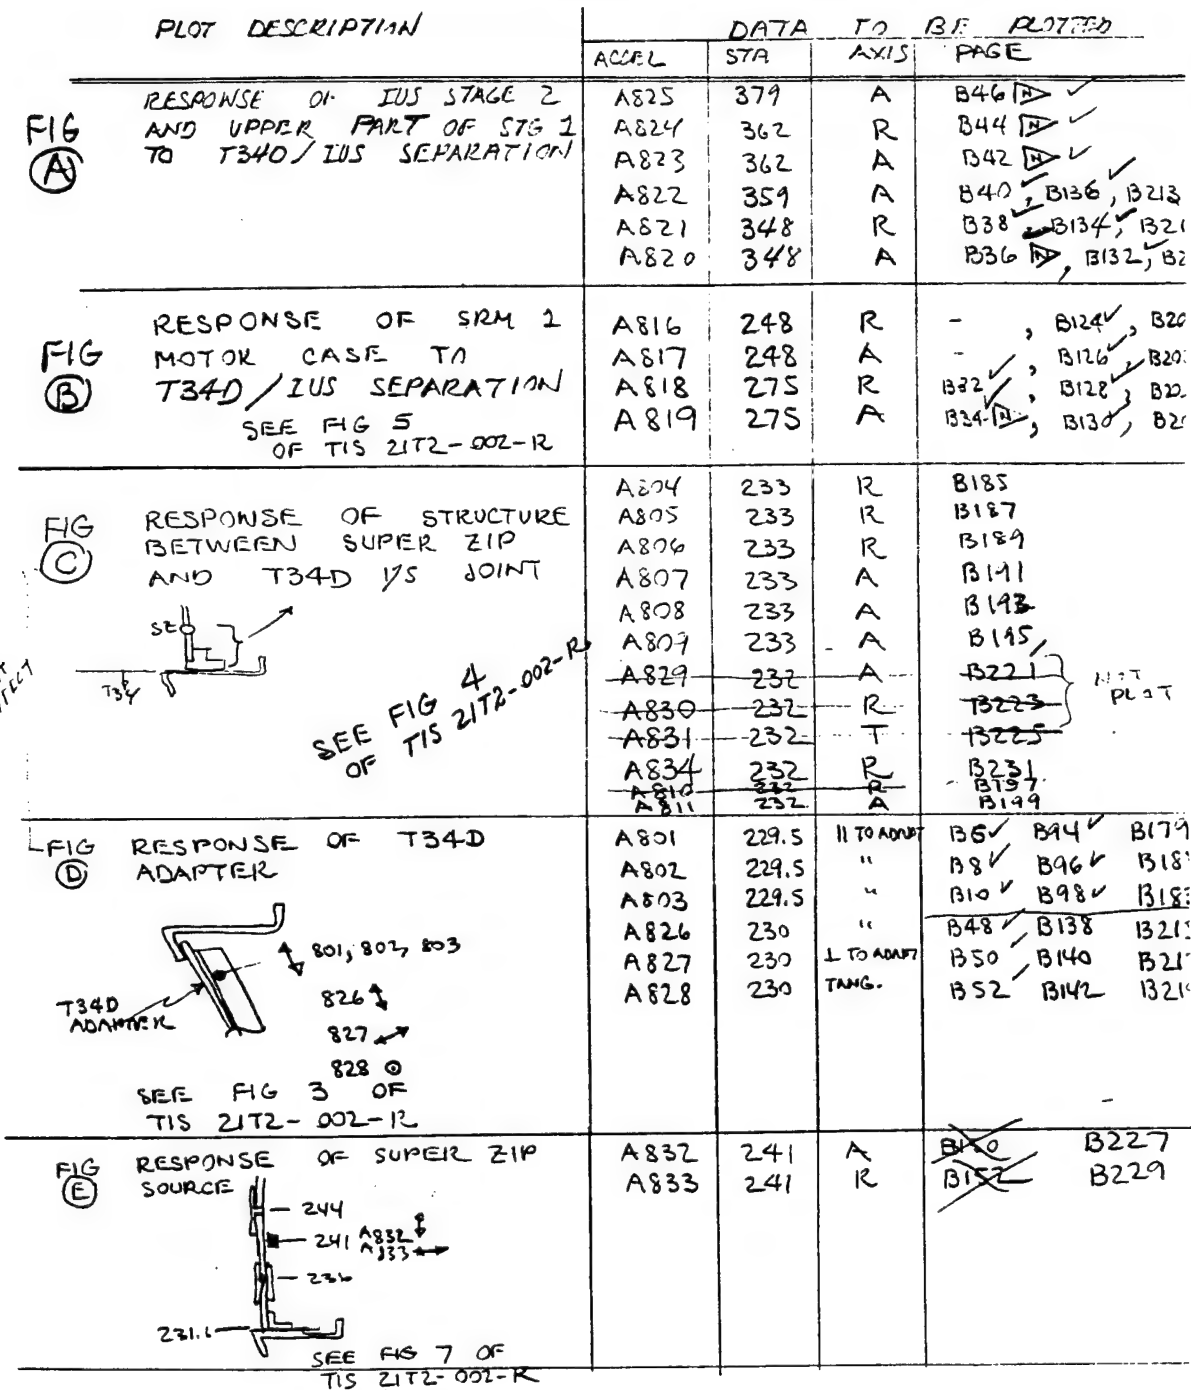 PLOT DESCRIPTION DATA TO BE PLOTTED
ACCEL STA AXIS PAGE
FIG A
RESPONSE OF IUS STAGE 2
AND UPPER PART OF STG 1
TO T34D/IUS SEPARATION
A825 379 A B46 N ✓
A824 362 R B44 N ✓
A823 362 A B42 N ✓
A822 359 A B40 ✓, B136 ✓, B213
A821 348 R B38 ✓ B134 ✓, B21
A820 348 A B36 N, B132 ✓, B2
FIG B
RESPONSE OF SRM 1
MOTOR CASE TO
T34D/IUS SEPARATION
SEE FIG 5
OF TIS 21T2-002-R
A816 248 R - , B124 ✓, B20
A817 248 A - , B126 ✓, B20
A818 275 R B32 ✓, B128 ✓, B20
A819 275 A B34 N ✓, B130 ✓, B20
FIG C
RESPONSE OF STRUCTURE
BETWEEN SUPER ZIP
AND T34D I/S JOINT
SZ
T34
SEE FIG 4
OF TIS 21T2-002-R
A804 233 R B185
A805 233 R B187
A806 233 R B189
A807 233 A B191
A808 233 A B193
A809 233 A B195
A829 232 A B221
A830 232 R B223
A831 232 T B225
NOT
PLOT
A834 232 R B231
A810 232 R B197
A811 232 A B199
FIG D
RESPONSE OF T34D
ADAPTER
801, 802, 803
826
827
828
T34D
ADAPTER
SEE FIG 3 OF
TIS 21T2-002-R
A801 229.5 || TO ADAPT B6 ✓ B94 ✓ B179
A802 229.5 " B8 ✓ B96 ✓ B18
A803 229.5 " B10 ✓ B98 ✓ B183
A826 230 " B48 ✓ B138 B21
A827 230 ⊥ TO ADAPT B50 ✓ B140 B217
A828 230 TANG. B52 ✓ B142 B21
FIG E
RESPONSE OF SUPER ZIP
SOURCE
244
241 A832
A833
236
231.6
SEE FIG 7 OF
TIS 21T2-002-R
A832 241 A B150 B227
A833 241 R B152 B229